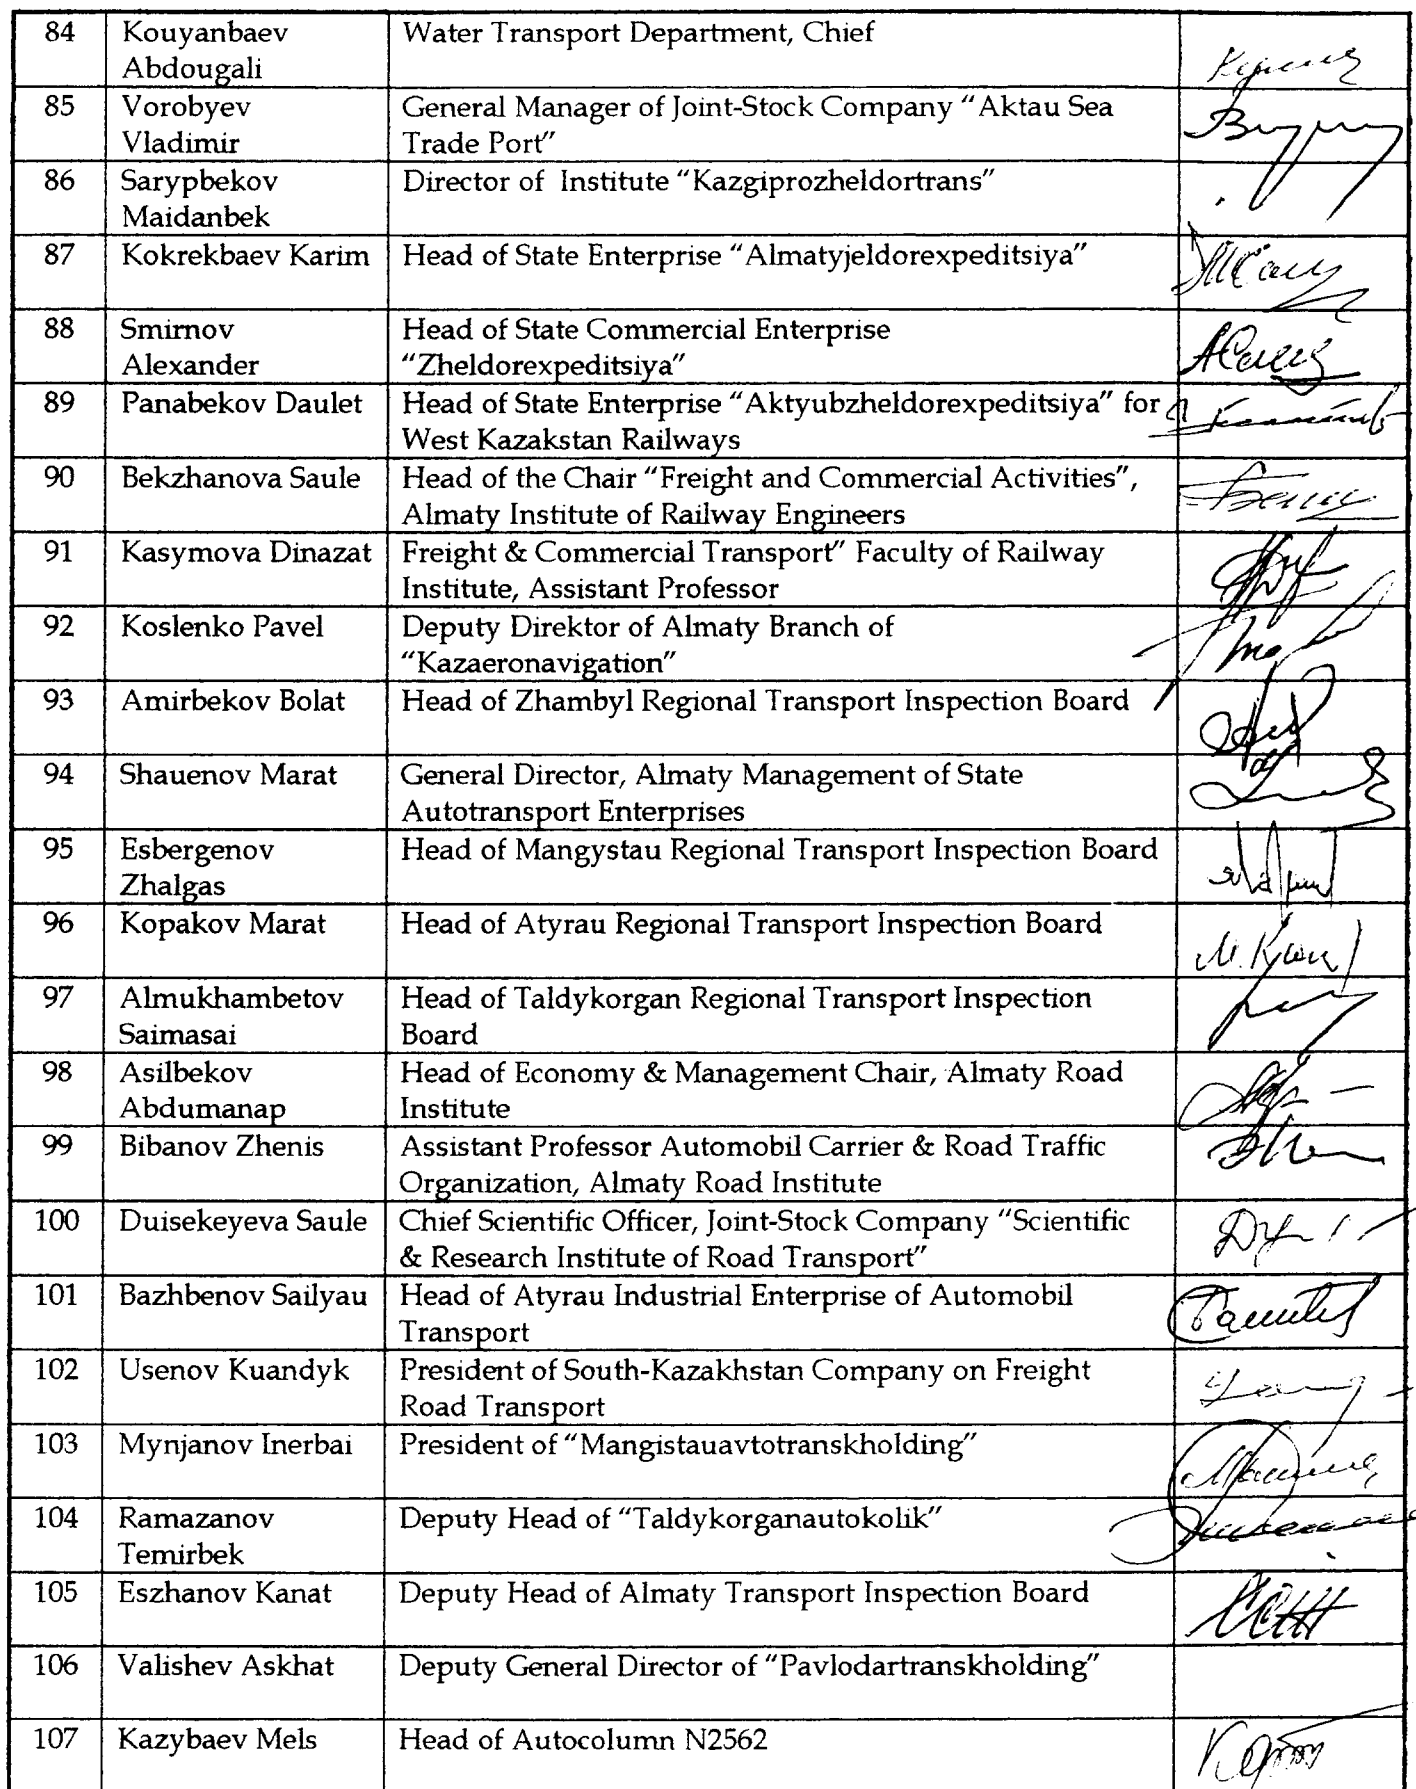 84 Kouyanbaev Water Transport Department, Chief
Abdougali
85 Vorobyev General Manager of Joint-Stock Company "Aktau Sea
Vladimir Trade Port"
86 Sarypbekov Director of Institute "Kazgiprozheldortrans"
Maidanbek
87 Kokrekbaev Karim Head of State Enterprise "Almatyjeldorexpeditsiya"
88 Smirnov Head of State Commercial Enterprise
Alexander "Zheldorexpeditsiya"
89 Panabekov Daulet Head of State Enterprise "Aktyubzheldorexpeditsiya" for
West Kazakstan Railways
90 Bekzhanova Saule Head of the Chair "Freight and Commercial Activities",
Almaty Institute of Railway Engineers
91 Kasymova Dinazat Freight & Commercial Transport" Faculty of Railway
Institute, Assistant Professor
92 Koslenko Pavel Deputy Direktor of Almaty Branch of
"Kazaeronavigation"
93 Amirbekov Bolat Head of Zhambyl Regional Transport Inspection Board
94 Shauenov Marat General Director, Almaty Management of State
Autotransport Enterprises
95 Esbergenov Head of Mangystau Regional Transport Inspection Board
Zhalgas
96 Kopakov Marat Head of Atyrau Regional Transport Inspection Board
97 Almukhambetov Head of Taldykorgan Regional Transport Inspection
Saimasai Board
98 Asilbekov Head of Economy & Management Chair, Almaty Road
Abdumanap Institute
99 Bibanov Zhenis Assistant Professor Automobil Carrier & Road Traffic
Organization, Almaty Road Institute
100 Duisekeyeva Saule Chief Scientific Officer, Joint-Stock Company "Scientific
& Research Institute of Road Transport"
101 Bazhbenov Sailyau Head of Atyrau Industrial Enterprise of Automobil
Transport
102 Usenov Kuandyk President of South-Kazakhstan Company on Freight
Road Transport
103 Mynjanov Inerbai President of "Mangistauavtotranskholding"
104 Ramazanov Deputy Head of "Taldykorganautokolik"
Temirbek
105 Eszhanov Kanat Deputy Head of Almaty Transport Inspection Board
106 Valishev Askhat Deputy General Director of "Pavlodartranskholding"
107 Kazybaev Mels Head of Autocolumn N2562